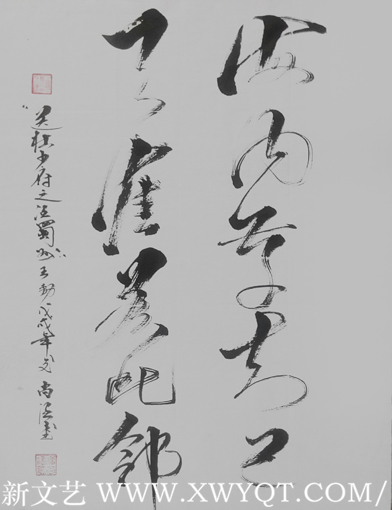 海内存知己
天涯若比邻
"送杜少府之任蜀州"王勃 戊戌年 尚
新文艺 WWW.XWYQT.COM/